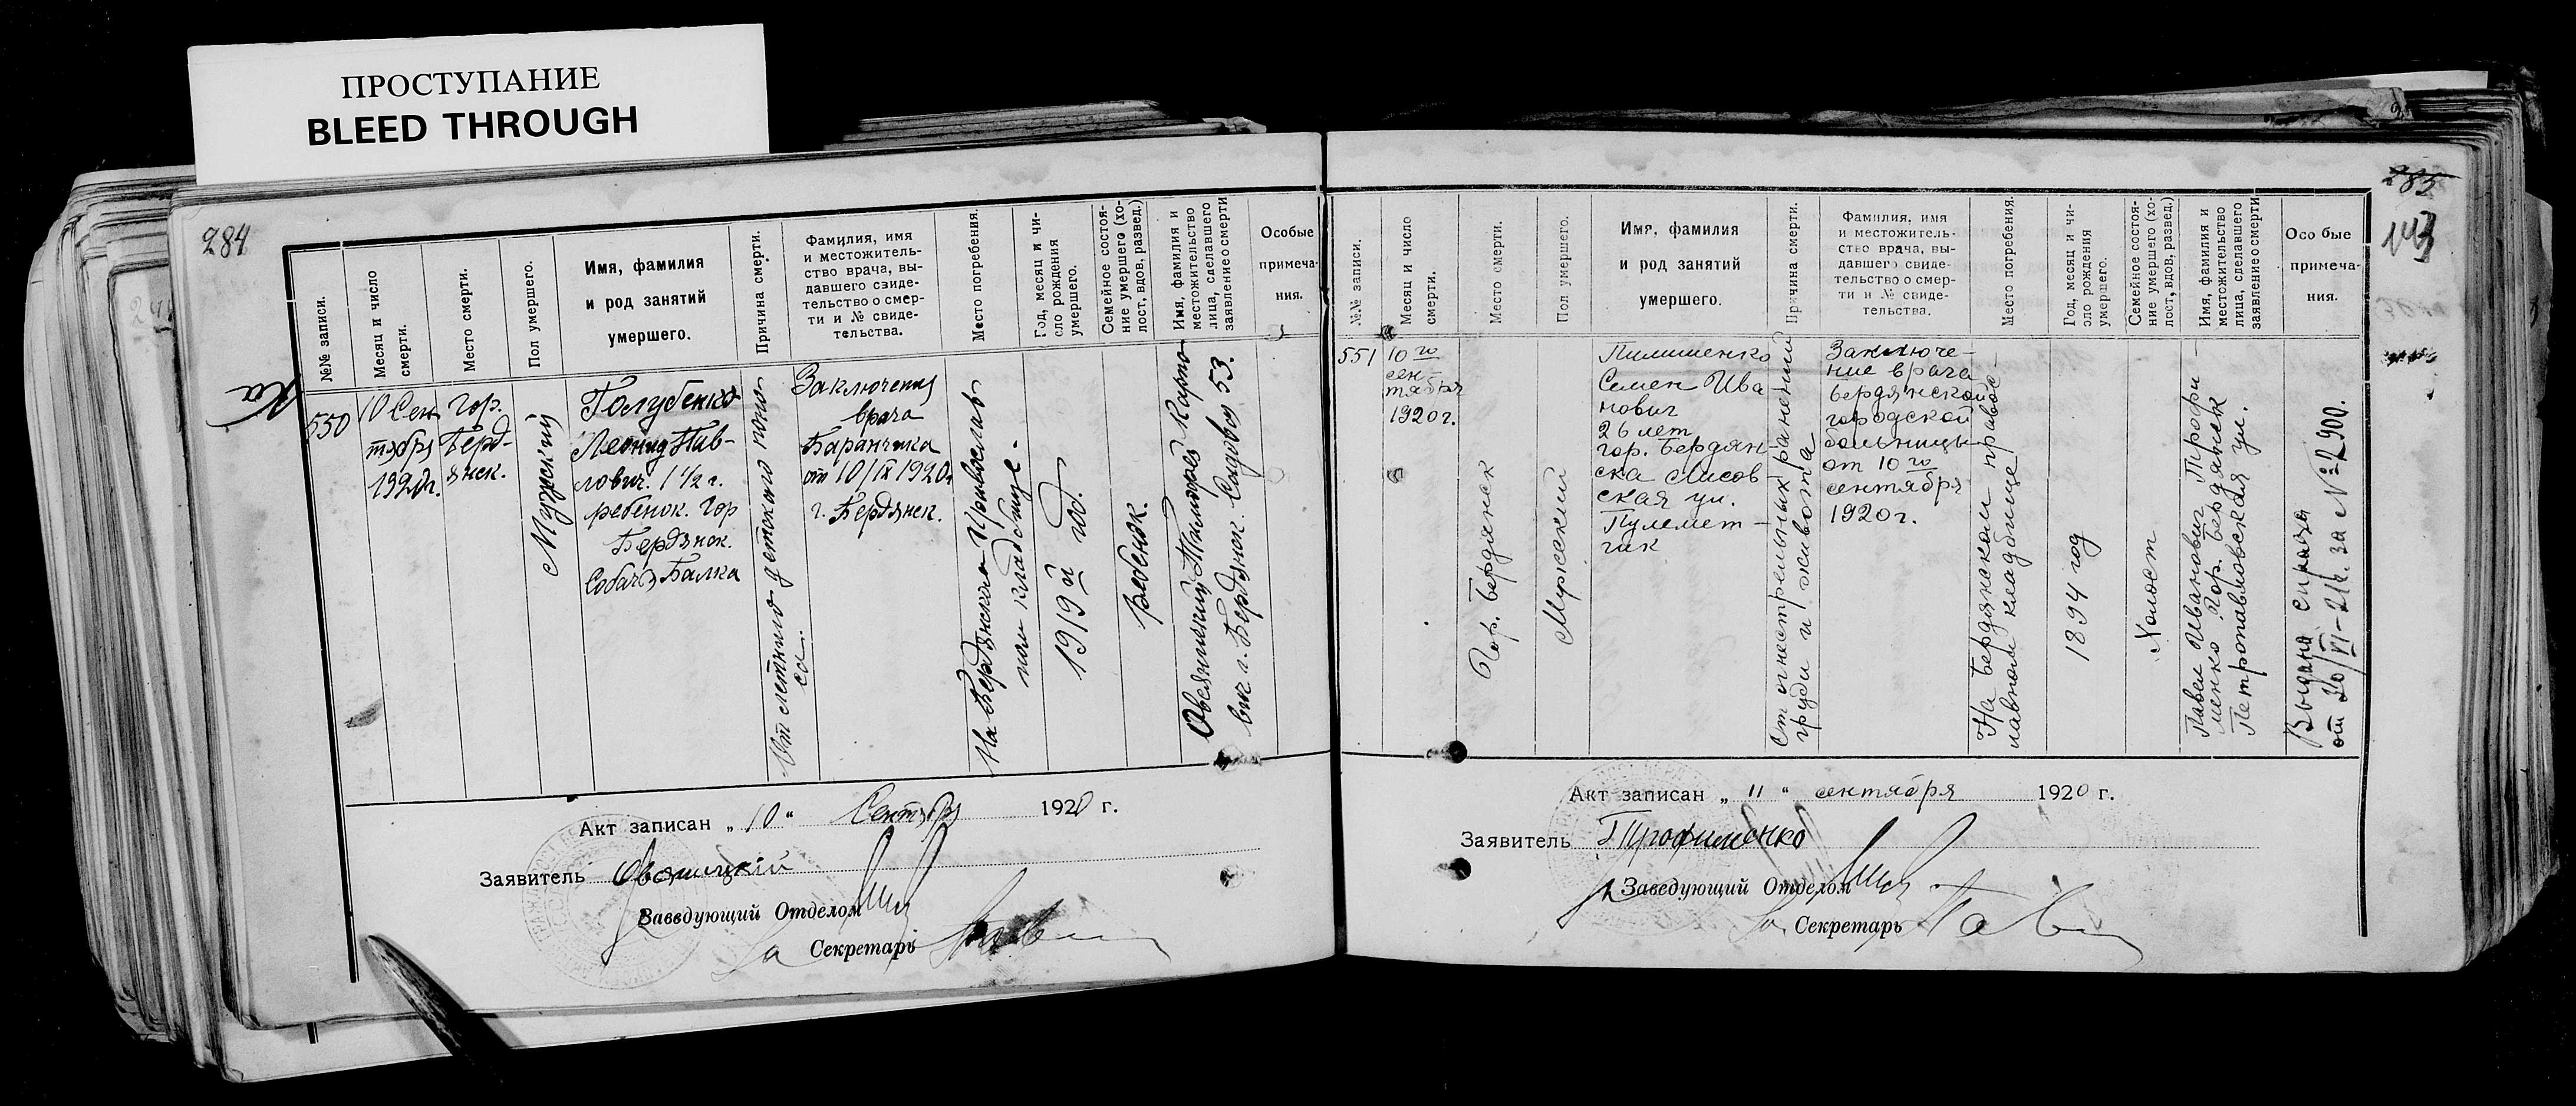 ПРОСТУПАНИЕ
BLEED THROUGH
284
№№ записи.
Месяц и число
смерти.
Место смерти.
Пол умершего.
Имя, фамилия
и род занятий
умершего.
Причина смерти.
Фамилия, имя
и местожитель-
ство врача, вы-
давшего свиде-
тельство о смер-
ти и № свиде-
тельства.
Место погребения.
Год, месяц и чи-
сло рождения
умершего.
Семейное состоя-
ние умершего (хо-
лост, вдов, развед.)
Имя, фамилия и
местожительство
лица, сделавшего
заявление о смерти
Особые
примеча-
ния.
550
10 Сен
тября
1920г.
Гор.
Бердя-
нск.
Мужской
Голубенко
Леонид Пав-
лович. 1 1/2 г.
ребенок. Гор
Бердянск.
Собачя Балка
От летнего детского поно
са.
Заключения
врача
Баранчика
от 10/IX 1920г
г. Бердянск.
На Бердянском Православ
ном кладбище.
1919й год.
Ребенок.
Овсяницкий Тимофей Карпо
вич. г. Бердянск. 53.
Акт записан „ 10 “ Сентября 1920 г.
Заявитель Овсяницкий
Заведующий Отделом
За Секретарь
285
143
№№ записи.
Месяц и число
смерти.
Место смерти.
Пол умершего.
Имя, фамилия
и род занятий
умершего.
Причина смерти.
Фамилия, имя
и местожитель-
ство врача, вы-
давшего свиде-
тельство о смер-
ти и № свиде-
тельства.
Место погребения.
Год, месяц и чи-
сло рождения
умершего.
Семейное состоя-
ние умершего (хо-
лост, вдов, развед.)
Имя, фамилия и
местожительство
лица, сделавшего
заявление о смерти
Осо бые
примеча-
ния.
551
10 го
сен-
тября
1920г.
Гор. Бердянск
Мужеский
Пилипенко
Семен Ива
нович
26 лет
гор. Бердян
ска Лисов
ская ул.
Пулемет-
чик
От огнестрельных ранений
груди и живота
Заключе-
ние врача
Бердянской
городской
больницы
от 10 го
сентября
1920г.
На Бердянском правос-
лавном кладбище
1894 год
Холост
Павел Иванович Трофи-
менко Гор. Бердянск
Петропавловская ул.
Выдана справка
от 20/VI-21г. за № 2900.
Акт записан „ 11 “ сентября 1920 г.
Заявитель Трофименко
Заведующий Отделом
За Секретарь